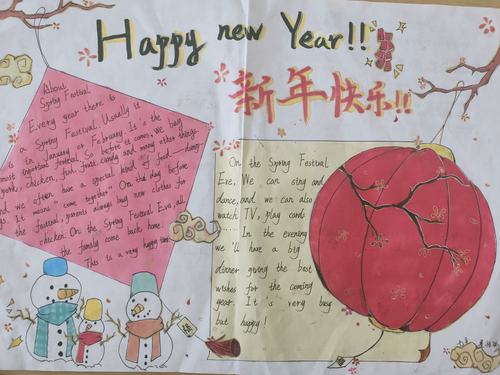 Happy new Year!!
新年快乐!!
About
Spring Festival
Every year there is
a Spring Festival. Usually is
in January or February. It's the
most important festival. So before it comes, we buy
chicken, fish, fruits, candy and many other things.
and we often have a special kind of food - dump-
It means "come together". On the day before
the festival, parents always buy new clothes for
chicken. On the Spring Festival Eve, all
the family come back home.
This is a very happy time
On the Spring Festival
Eve, We can sing and
dance, and we can also
watch TV, play cards
...... In the evening
we 'll have a big
dinner giving the best
wishes for the coming
year. It is very busy
but happy!